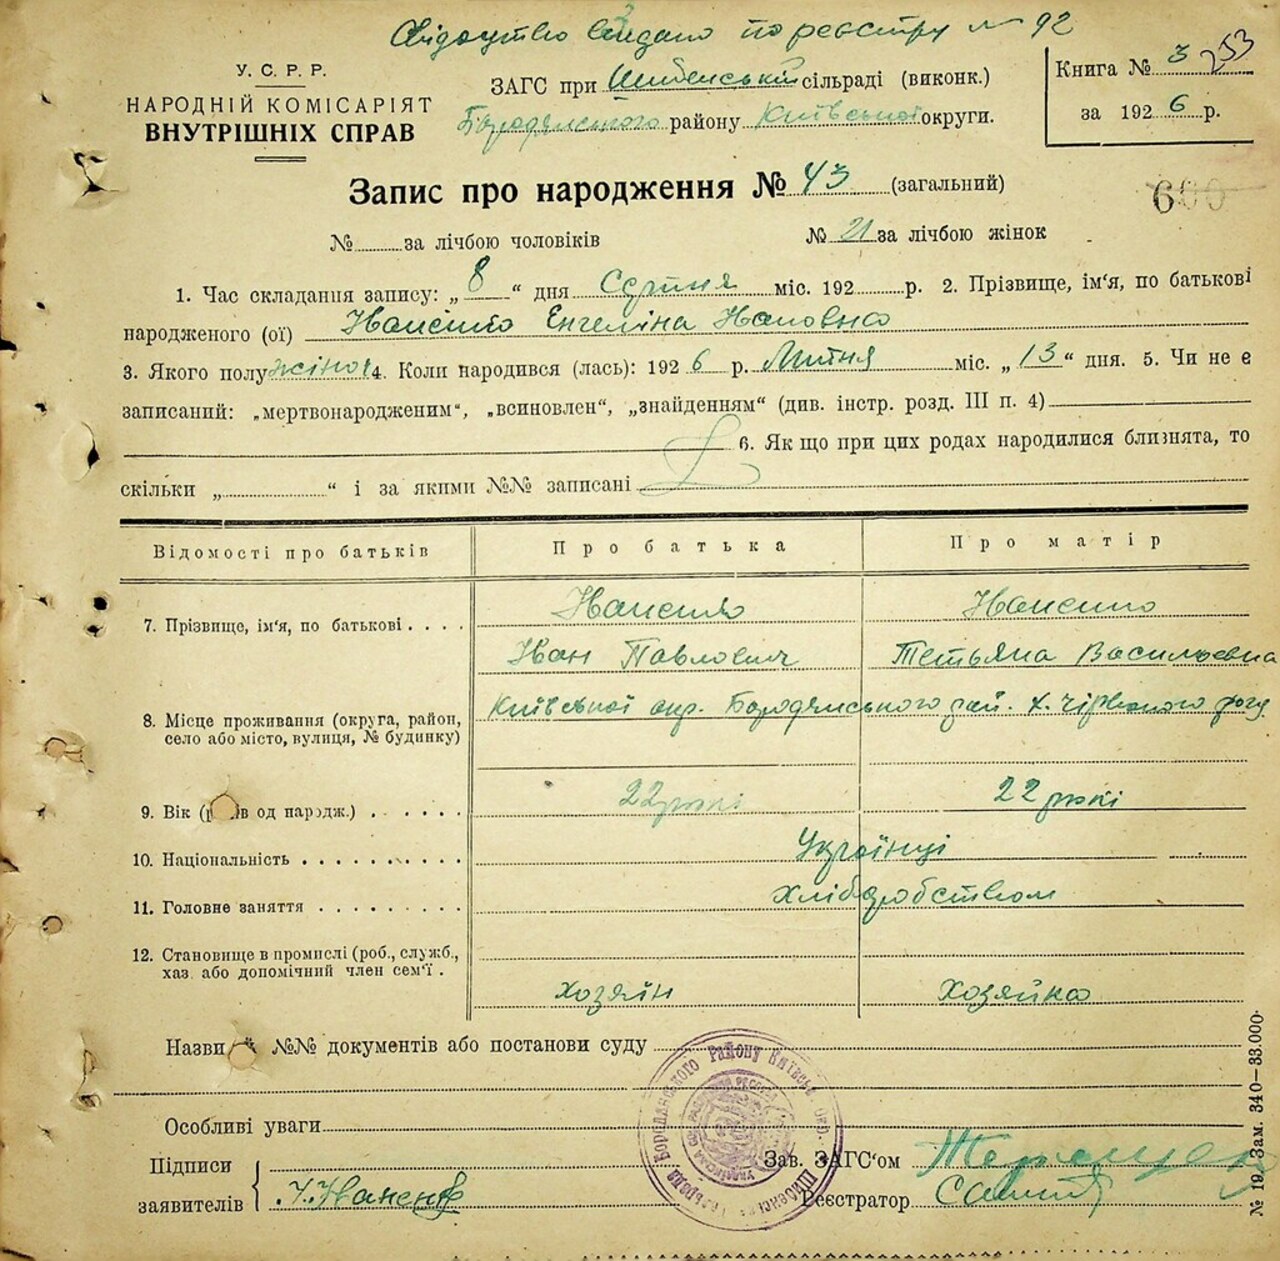 Свідоцтво видано по реєстру № 92
У. С. Р. Р.
НАРОДНІЙ КОМІСАРІЯТ
ВНУТРІШНІХ СПРАВ
ЗАГС при Шибенській сільраді (виконк.)
Бородянського району Київської округи.
Книга № 3 253
за 1926 р.
Запис про народження № 43 (загальний)
600
№ за лічбою чоловіків № 21 за лічбою жінок
1. Час складання запису: „8“ дня Серпня міс. 192 р. 2. Прізвище, ім'я, по батькові
народженого (ої) Енгеліна Івановна
3. Якого полу жіноч 4. Коли народився (лась): 1926 р. Липня міс. „13“ дня. 5. Чи не є
записаний: „мертвонародженим“, „всиновлен“, „знайденням“ (див. інстр. розд. III п. 4)
6. Як що при цих родах народилися близнята, то
скільки „ “ і за якими №№ записані
Відомості про батьків Про батька Про матір
7. Прізвище, ім'я, по батькові . . . .
Іван Павлович Тетьяна Васильевна
8. Місце проживання (округа, район,
село або місто, вулиця, № будинку)
Київської окр. Бородянського рай. х. Чірвоного рогу
9. Вік (років од народж.) . . . . . . 22 рокі 22 рокі
10. Національність . . . . . . . . . . Українці
11. Головне заняття . . . . . . . . . Хліборобством
12. Становище в промислі (роб., служб.,
хаз. або допомічний член сем'ї .
Хозяїн Хозяйка
Назви й №№ документів або постанови суду
Особливі уваги
Підписи
заявителів
Зав. ЗАГС'ом
Реєстратор
Бородянського Району Київськ. Окр.
№ 19. Зам. 340—33.000.